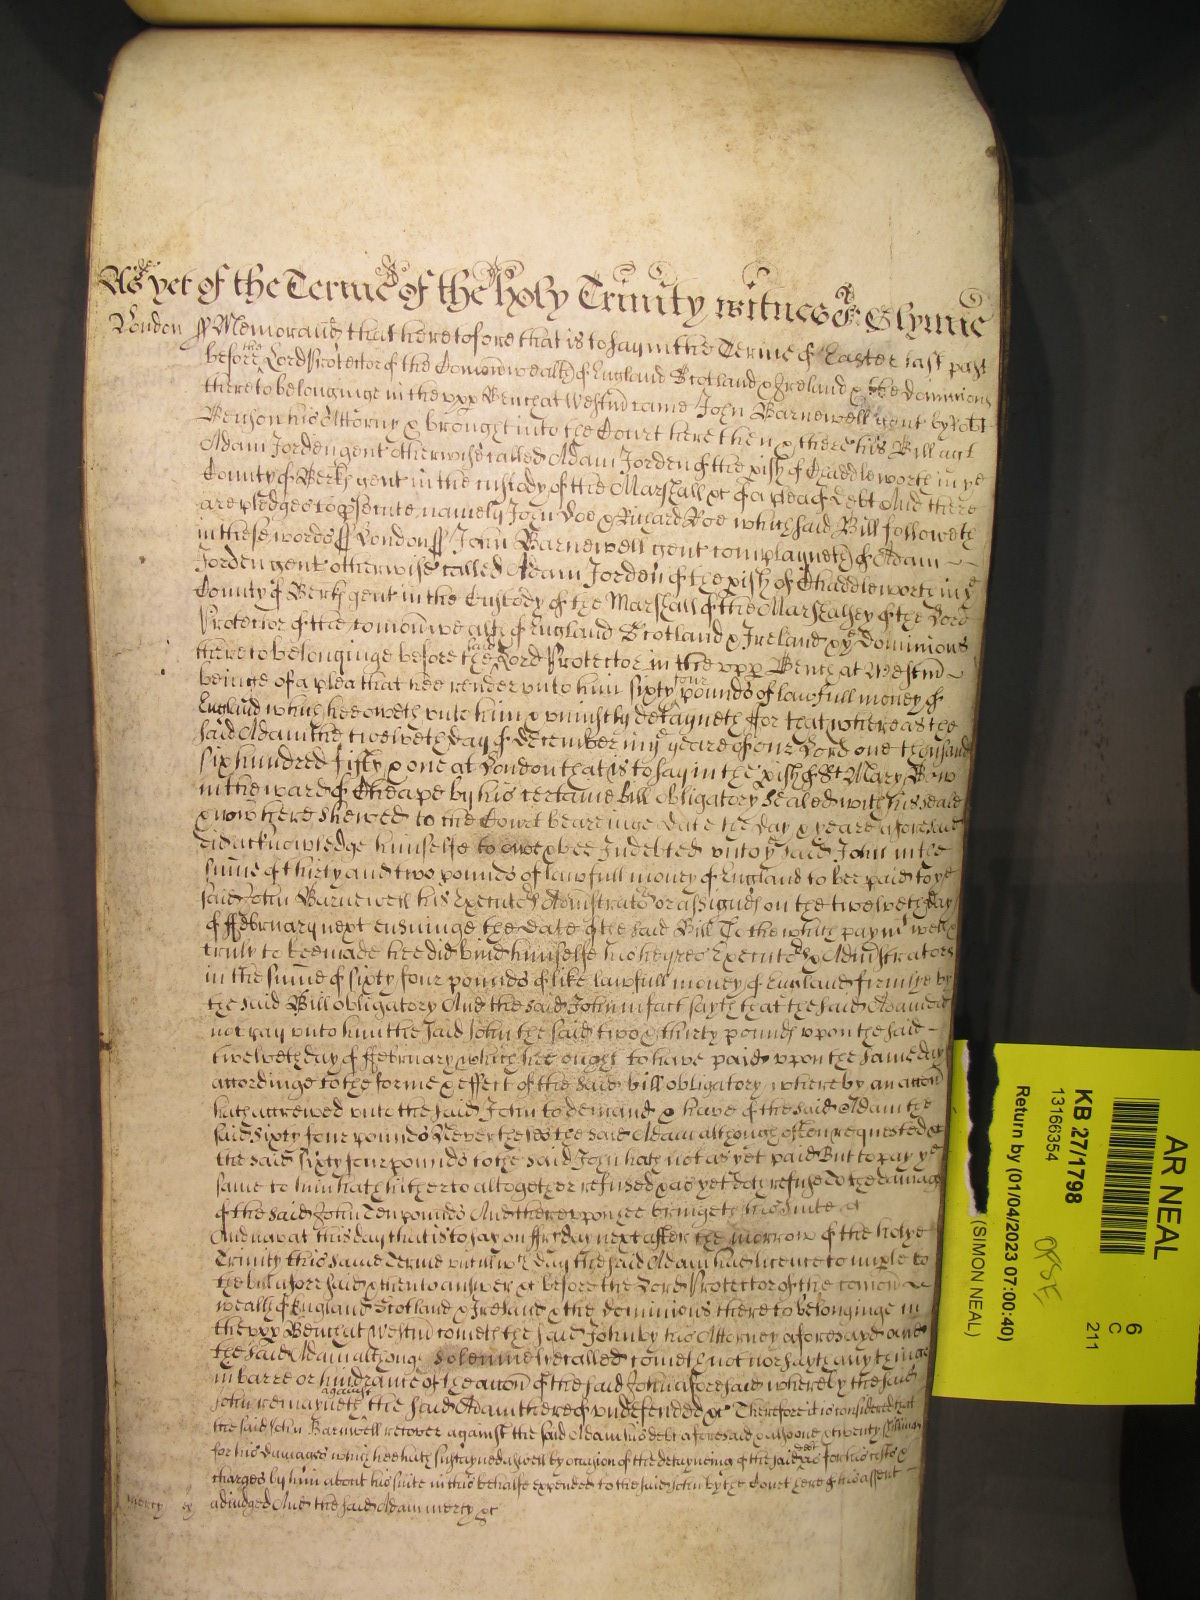 As yet of the Terme of the holy Trinity witnes &c Glynne
London ss Memorand that heretofore that is to say in the Terme of Easter last past
before the Lord Protector of the Comonwealth of England Scotland & Ireland & the dominions
thereto belonginge in the upp Bench at Westm came John Barnewell gent by Robt
Benson his Attorny & brought into the Court here then & there his Bill agt
Adam Jorden gent otherwise called Adam Jorden of the pish of Chaddleworth in ye
County of Berks gent in the custody of the Marshall &c of a plea of debt And there
are pledges to psecute namely John Doe & Richard Roe which said Bill followeth
in these words ss London ss John Barnewell gent complayneth of Adam
Jorden gent otherwise called Adam Jorden of the pish of Chaddleworth in ye
County of Berks gent in the Custody of the Marshall of the Marshalsey of the Lord
Protector of the comonwealth of England Scotland & Ireland & ye Dominions
thereto belonginge before the said Lord Protector in the upp Bench at Westm
beinge of a plea that hee render unto him sixty four pounds of lawfull money of
England which hee oweth unto him & uniustly detayneth for that whereas the
said Adam the twelveth day of December in ye yeare of our Lord one thousand
six hundred fifty & one at London that is to say in the pish of St Mary Bow
in the ward of Cheape by his certaine bill obligatory Sealed with his seale
& now here shewed to the Court beareinge date the day & yeare aforesaid
did acknowledge himselfe to owe & bee Indebted unto ye said John in the
sume of thirty and two pounds of lawfull money of England to bee paid to ye
said John Barnewell his Executors Administrators or assignes on the twelveth day
of ffebruary next ensuinge the date of the said Bill To the which paymt well &
truly to bee made hee did bind himselfe his heyres Executors & Administrators
in the sume of sixty four pounds of like lawfull money of England firmlye by
the said Bill obligatory And the said John in fact sayth that the said Adam did
not pay unto him the said John the said two & thirty pounds upon the said
twelveth day of ffebruary which hee ought to have paid upon the same day
accordinge to the forme & effect of the said bill obligatory whereby an accon
hath accrewed unto the said John to demand & have of the said Adam the
said sixty four pounds Neverthelesse the said Adam although often requested &c
the said sixty four pounds to the said John hath not as yet paid But to pay ye
same to him hath hitherto altogether refused & as yet doth refuse To the damage
of the said John Ten pounds And thereupon hee bringeth his suite &c
And now at this day that is to say on ffriday next after the morrow of the holye
Trinity this same Terme untill wch day the said Adam had licence to imple to
the bill aforesaid & then to answer &c before the Lord Protector of the comon
wealth of England Scotland & Ireland & the dominions thereto belonginge in
the upp Bench at Westm cometh the said John by his Attorney aforesayd and
the said Adam although solemnely called cometh not nor sayth any thinge
in barre or hindrance of the accon of the said John aforesaid whereby the said
John remayneth against the said Adam thereof undefended &c Therefore it is considered that
the said John Barnwell recover against the said Adam his debt aforesaid & alsoe one & twenty shillings
for his damages which hee hath sustayned aswell by occasion of the detayninge of the said debt as for his costs &
charges by him about his suite in this behalfe expended to the said John by the Court here of his assent
adiudged And the said Adam mercy &c
mercy
AR NEAL
6
C
211
KB 27/1798
13166354
Return by (01/04/2023 07:00:40)
(SIMON NEAL)